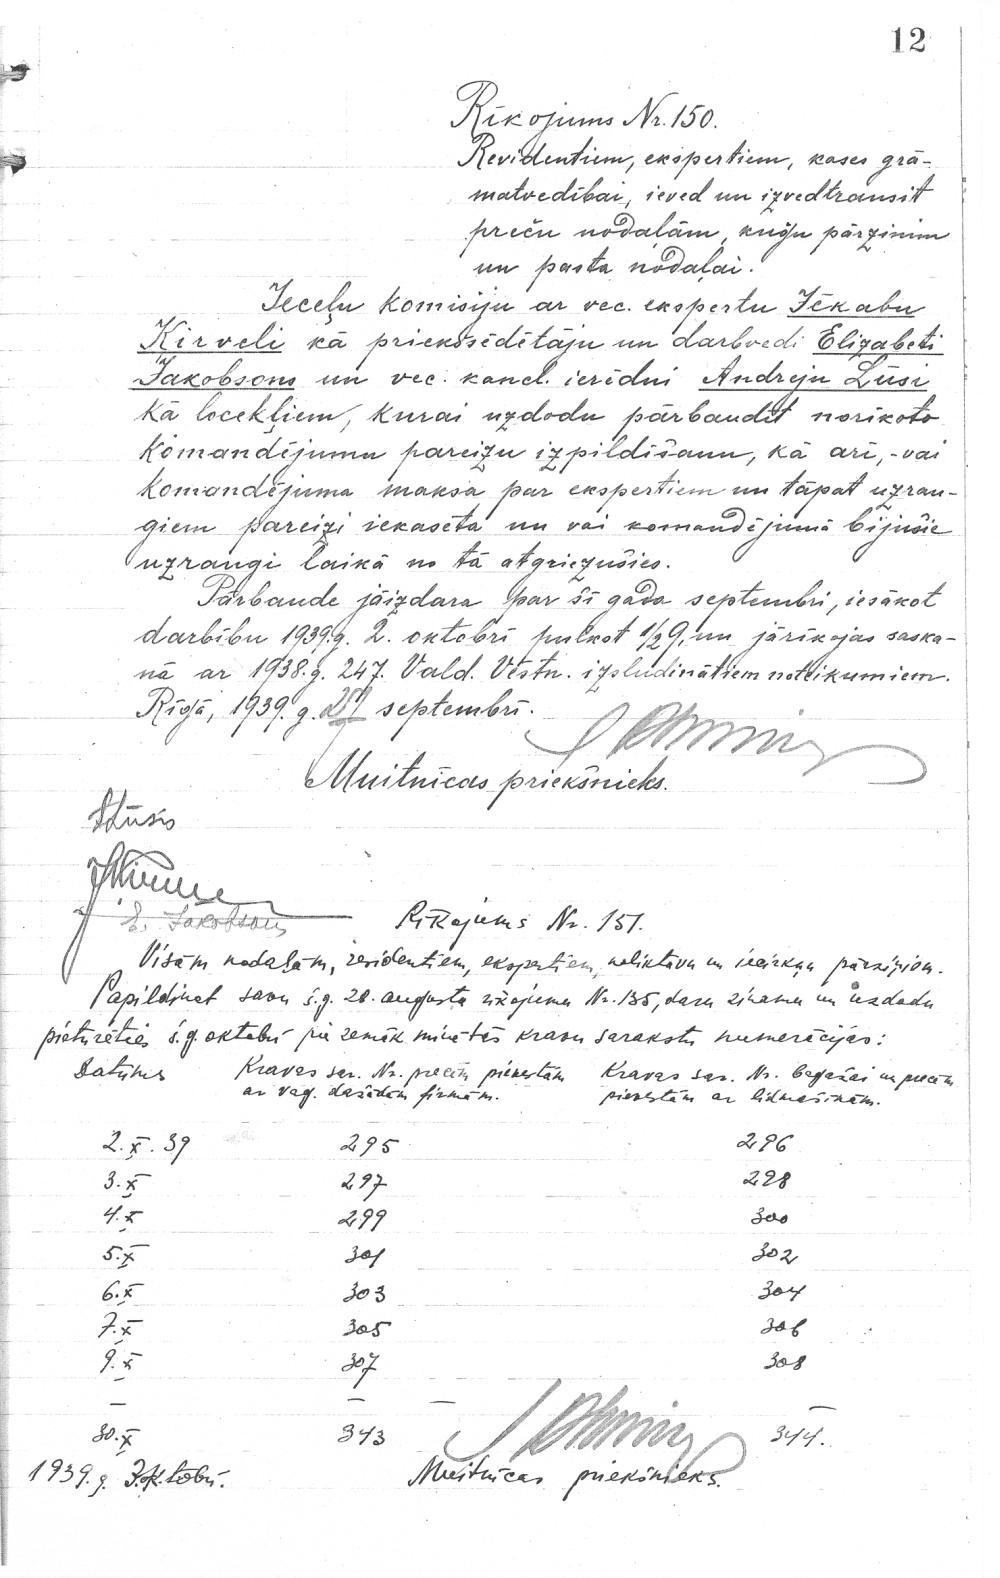 12
Rīkojums Nr. 150.
Revidentiem, ekspertiem, kases grā-
matvedībai, ieved un izvedtransit
preču nodaļām, kuģu pārzinim
un pasta nodaļai.
Ieceļu komisiju ar vec. ekspertu Jēkabu
Kirveli kā priekšsēdētāju un darbvedi Elizabeti
Jakobsons un vec. kancl. ierēdni Andreju Lūsi
kā locekļiem, kurai uzdodu pārbaudīt norīkoto
komandējumu pareizu izpildīšanu, kā arī, - vai
komandējuma maksa par ekspertiem un tāpat uzrau-
giem pareizi iekasēta un vai komandējumā bijušie
uzraugi laikā no tā atgriezušies.
Pārbaude jāizdara par šī gada septembri, iesākot
darbību 1939.g. 2. oktobrī pulkst. 1/2 9, un jārīkojas saska-
ņā ar 1938.g. 247. Vald. Vēstn. izsludinātiem noteikumiem.
Rīgā, 1939. g. 27 septembrī.
Muitnīcas priekšnieks.
ALūsis
E. Jakobsons
Rīkojums Nr. 151.
Visām nodaļām, revidentiem, ekspertiem, noliktavu un iecirkņu pārziņiem.
Papildinot savu š.g. 28. augusta rīkojumu Nr. 135, daru zināmu un uzdodu
pieturēties š.g. oktobrī pie zemāk minētās kravu sarakstu numerācijas:
Datums Kravas sar. Nr. precēm pievestām Kravas sar. Nr. bagažai un precēm
ar vag. dažādām firmām. pievestām ar lidmašinām.
2.X.39 295 296
3.X 297 298
4.X 299 300
5.X 301 302
6.X 303 304
7.X 305 306
9.X 307 308
– – – –
30.X 343 344.
1939.g. oktobrī.
Muitnīcas priekšnieks.